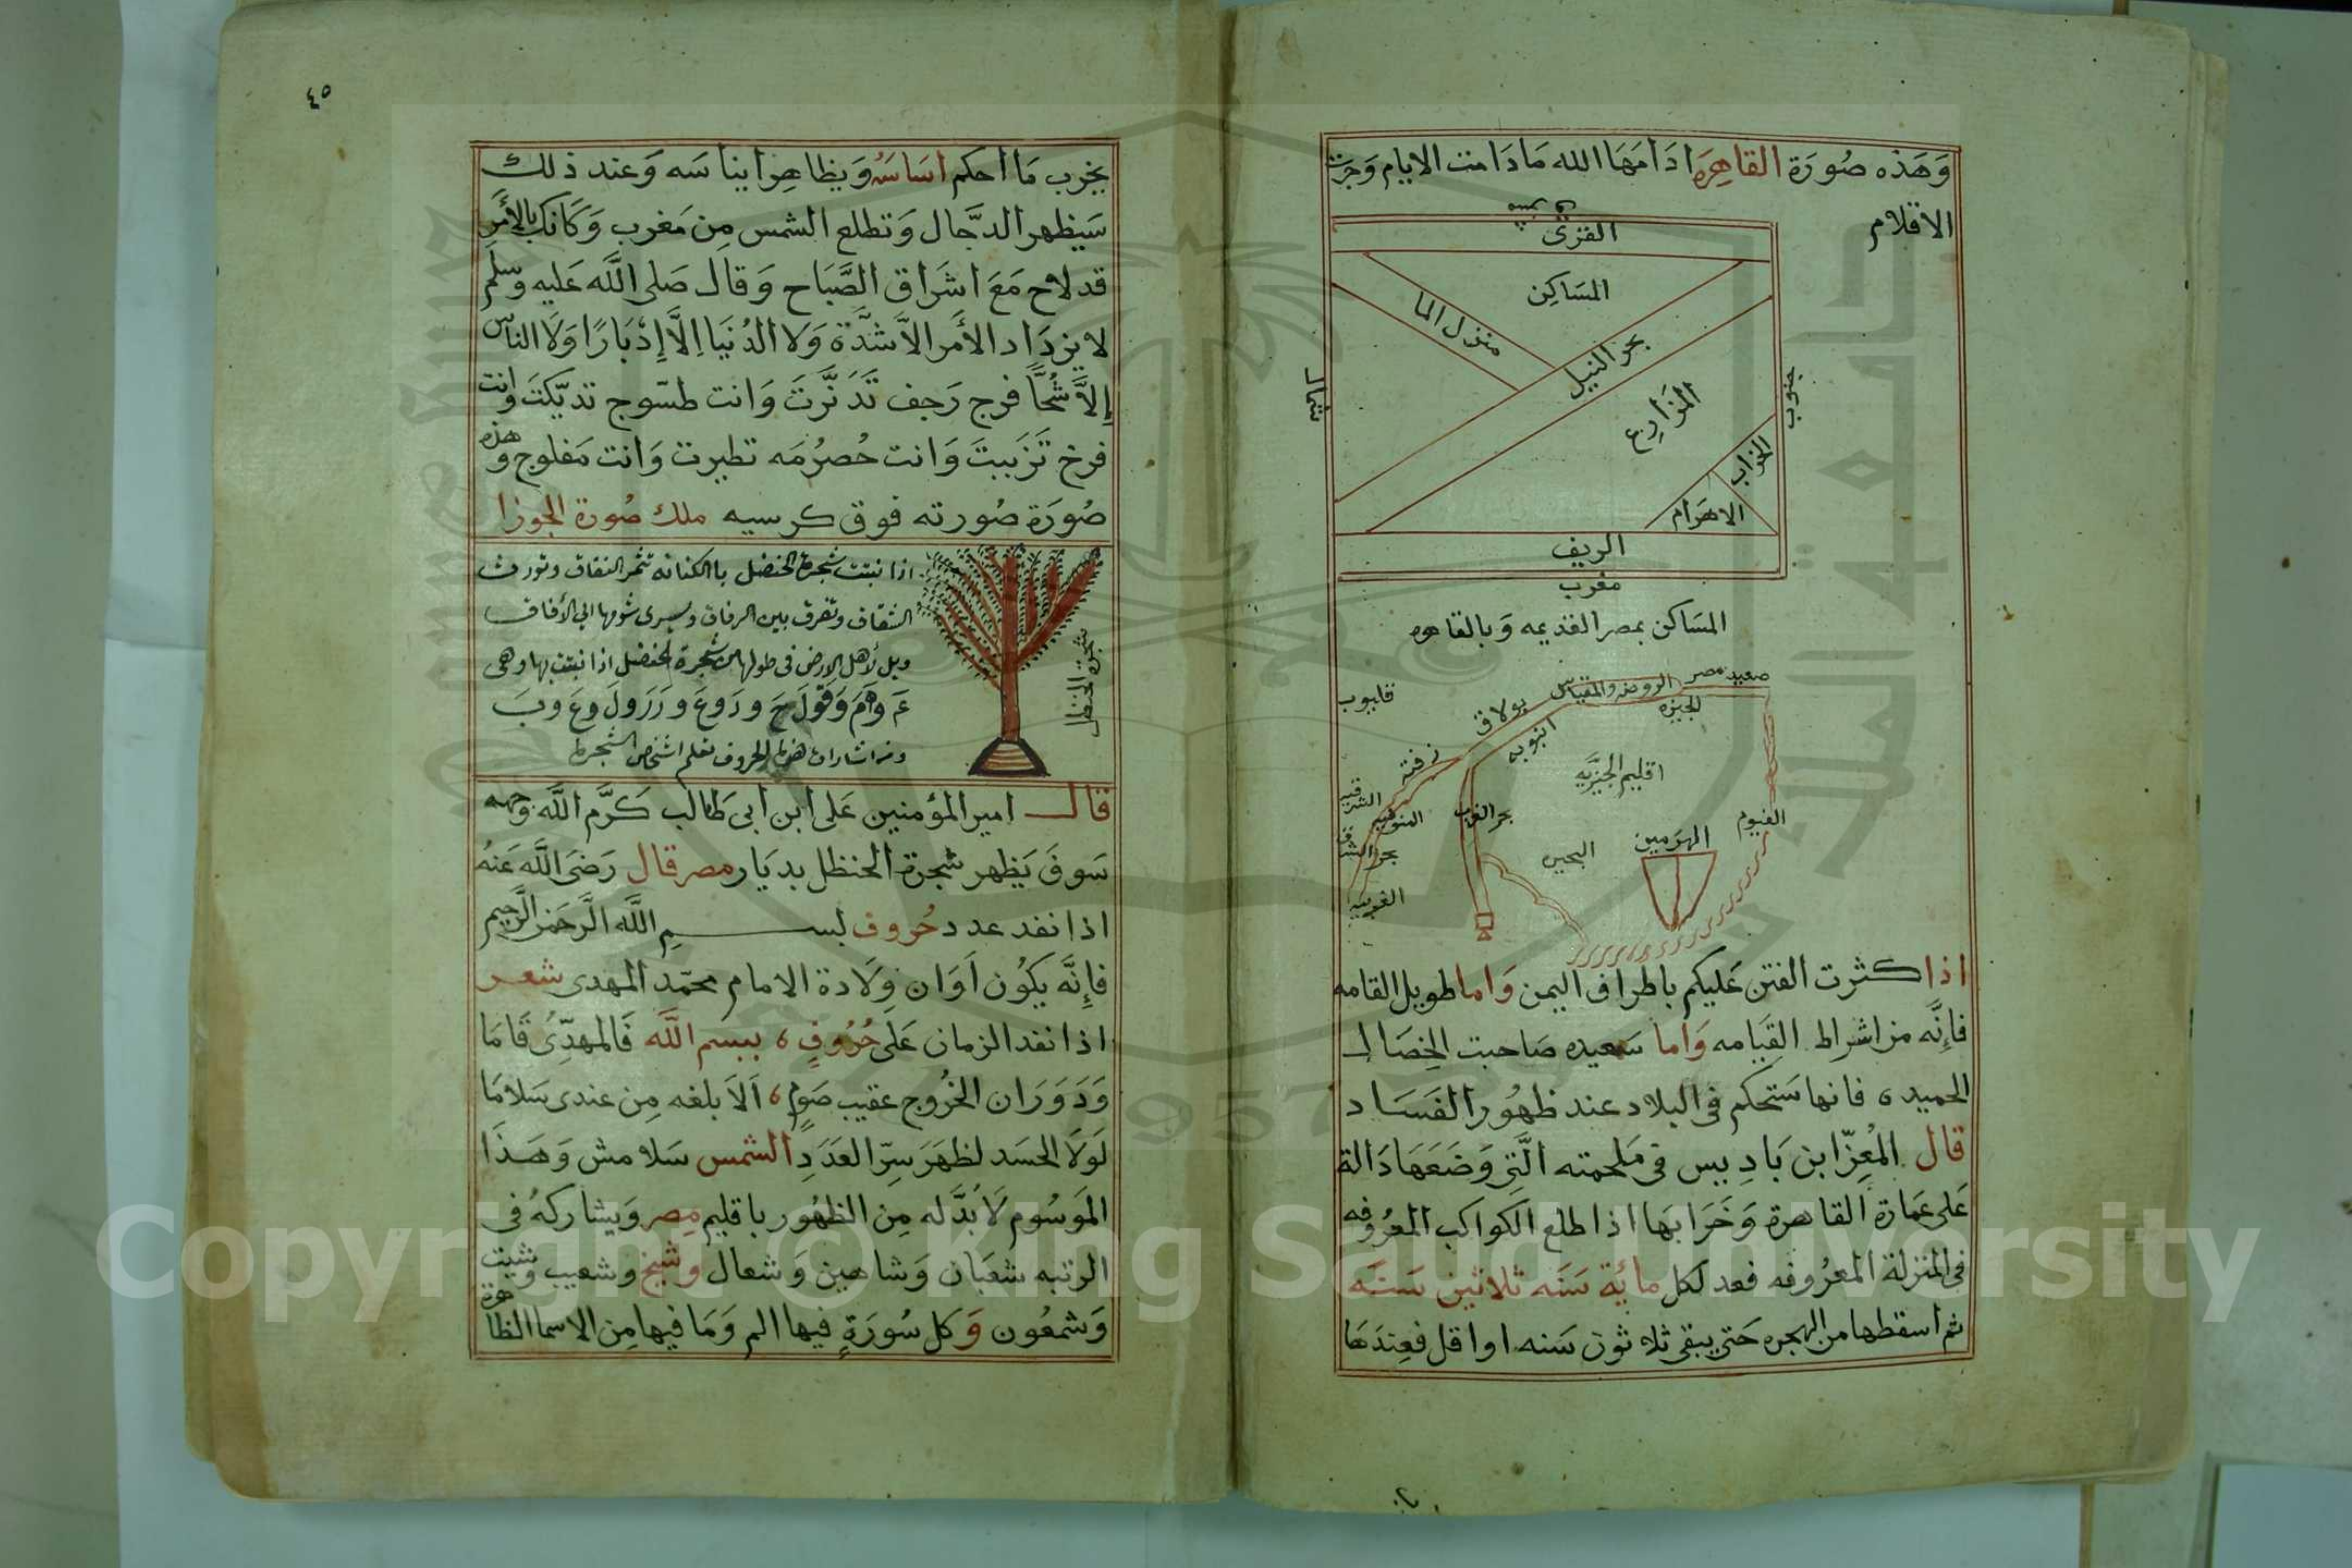 وَهَذه صُورَة القاهِرَه ادَامَهَا الله مَا دَامت الايام وَجرت
الاقلام
القرى
المسَاكِن
منزل الما
بحر النيل
المزَارِع
الخراب
الاهرَام
الريف
مغرب
جنوب
شمال
المسَاكن بمصر القديمه وَبالقاهره
صعيد مصر
الروضه والمقياس
الجيزه
بولاق
انبوبه
قليوب
زفته
اقليم الجيزيه
الشرقيه
المنوفيه
بحر الغرب
بحر الشرق
الغربيه
الفيوم
الهرَمين
البحيره
اذا كثرت الفتن عَليكم باطراف اليمن وَاما طويل القامه
فاِنَّه من اشراط القِيَامه وَاما سَعيده صَاحبت الخِصَال
الحميده فانها سَتحكم في البلاد عند ظهُور الفسَاد
قال المُعِزّ ابن بَادِيس في مَلحمته الَّتِي وَضَعَهَا دَالة
عَلى عمَارة القاهرة وَخَرَابهَا اذا طلع الكواكب المعرُوفه
في المنزلة المعرُوفه فعد لكل مائة سَنَه ثلاثين سَنَه
ثم اسقطها من الهجره حَتى يبقى ثلاثون سَنه او اقل فعِندَهَا
٤٥
يخرب مَا احكم اسَاسَهُ وَيظاهِر ايناسَه وَعند ذلك
سَيظهر الدجَّال وَتطلع الشمس مِن مَغرب وَكَانك بالأمَرِ
قد لاح مَعَ اشرَاق الصَّبَاح وَقال صَلى اللَّه عَليه وسلم
لا يزدَاد الأمر الاَّ شدَّة وَلا الدُنيَا اِلَّا إِدْبَارًا وَلَا الناس
إلاَّ شُحَّاً فرج رَجف تَدَنَّرتَ وَانت طسّوج تديّكتَ وانت
فرخ تَزَببتَ وَانت حُصرُمَه تطيرت وَانت مَفلوج وهذه
صُورَة صُورته فوق كرسيه ملك صُورة الجوزا
اذا نبتت شجرة الحنضل باالكنانه تثمر النفاق وتورث
الشقاق وتفرق بين الرفاق ويسرى شومها الى الأفاق
ويل لأهل الارض في طولها من شجرة الحنضل اذا نبتت بها وهى
شجرة الحنظل
قال امير المؤمنين عَلى ابن ابى طالب كَرَّم اللَّه وَجهه
سَوفَ يَظهر شجرة الحنظل بديَار مصر قال رَضىَ اللَّه عَنهُ
اذا نفد عدد حُروف بسم اللَّه الرَّحمَن الرَّحيم
فاِنَّه يكُون اَوَان وِلَادة الامام محمّد المهدى شعر
اذا نفد الزمان عَلى حُرُوفٍ ببسم اللَّه فَالمهدِّىُ قَامَا
وَدَوَرَان الخرُوج عقيب صَومٍ اَلاَ بلغه مِن عندى سَلامَا
لَولَا الحَسَد لظهَرَ سِرّ العَدَدِ الشمس سَلامش وَهَذَا
المَوسُوم لَابُدَّ له مِن الظهُور باقليم مِصر وَيشاركهُ فى
الرتبه شعبَان وَشاهين وَشعال وشيخ وشعيب وشيت
وَشمعُون وَكل سُورَةٍ فيها الم وَمَا فيها مِن الاسما الظاهرة